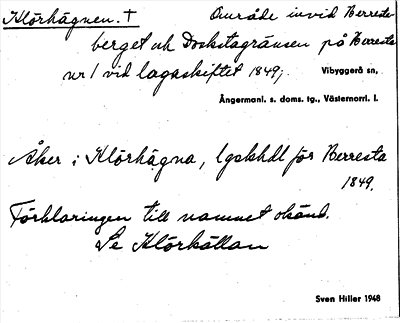 Klörhägnen. † Område invid Berresta-
berget och Dockstagränsen på Berresta
nr 1 vid lagaskiftet 1849; Vibyggerå sn,
Ångermanl. s. doms. tg., Västernorrl. l.
Åker i Klörhägna, lgskhdl för Berresta
1849.
Förklaringen till namnet okänd.
Se Klörkällan
Sven Hiller 1948